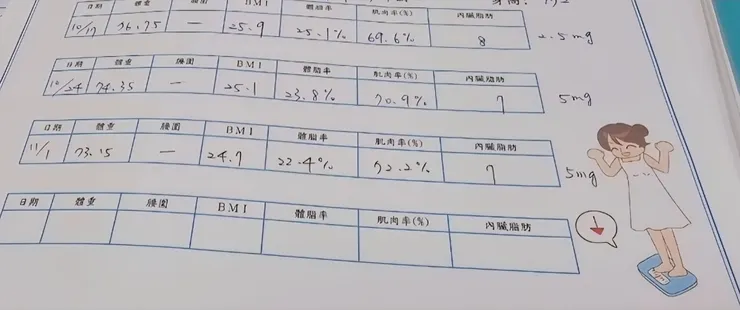 身高: 172
日期 體重 腰圍 BMI 體脂率 肌肉率(%) 內臟脂肪
10/17 76.75 — 25.9 25.1% 69.6% 8 2.5mg
日期 體重 腰圍 BMI 體脂率 肌肉率(%) 內臟脂肪
10/24 74.35 — 25.1 23.8% 70.9% 7 5mg
日期 體重 腰圍 BMI 體脂率 肌肉率(%) 內臟脂肪
11/1 73.15 — 24.7 22.4% 72.2% 7 5mg
日期 體重 腰圍 BMI 體脂率 肌肉率(%) 內臟脂肪